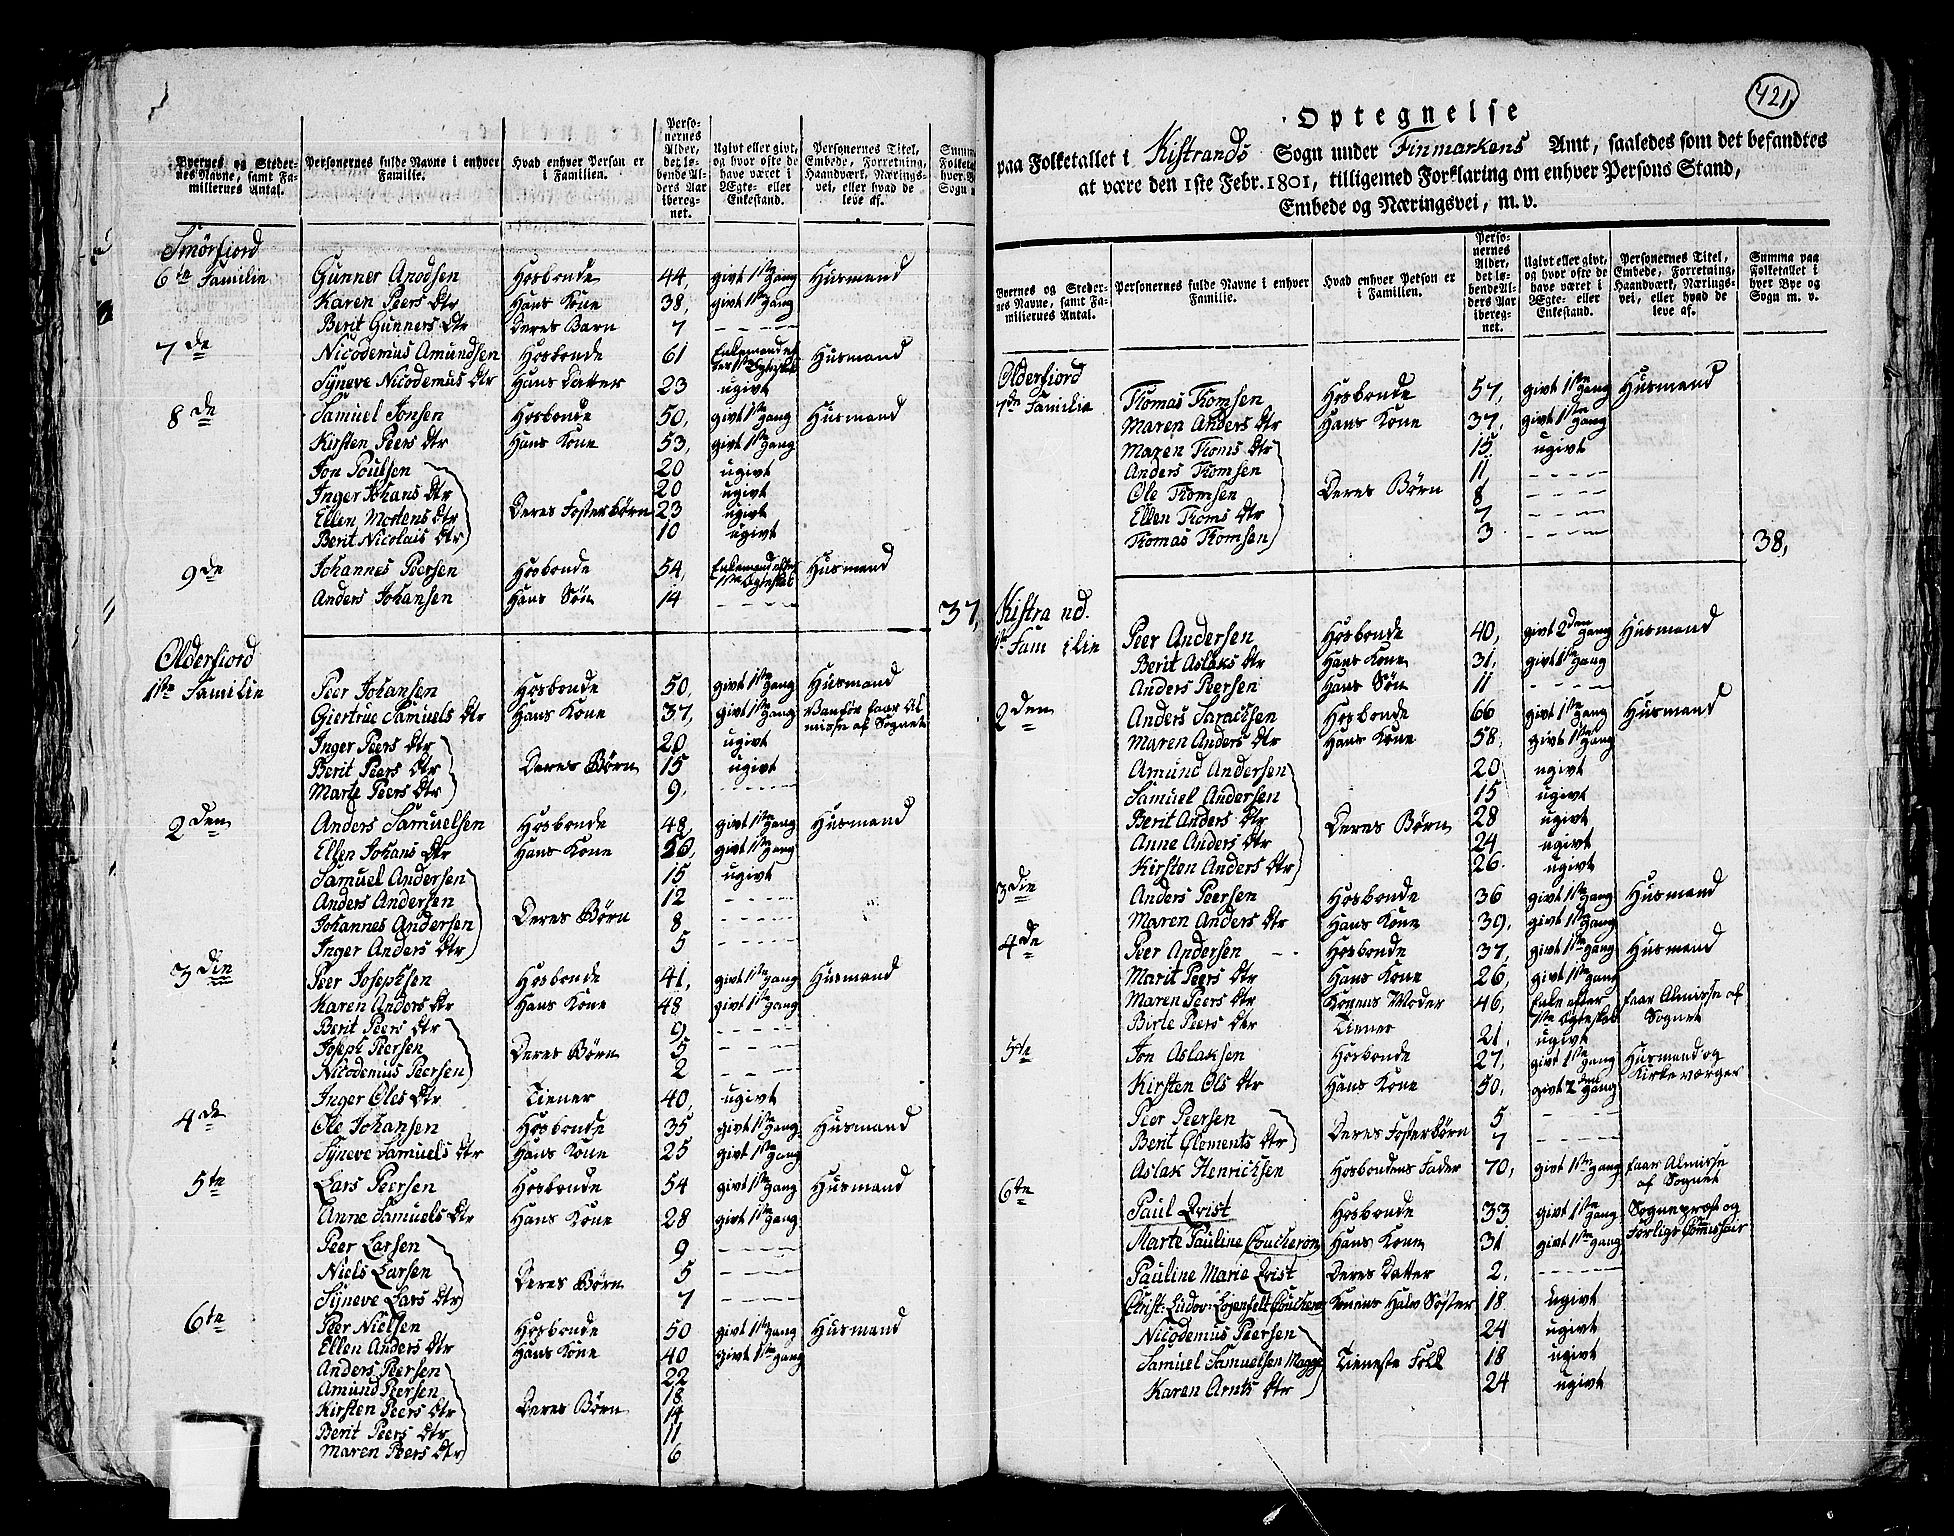 Byernes og Stedernes Navne, samt Familiernes Antal.
Personernes fulde Navne i enhver Familie.
Hvad enhver Person er i Familien.
Personernes Alder, det løbende Alders Aar iberegnet.
Ugivt eller givt, og hvor ofte de have været i Ægte- eller Enkestand.
Personernes Titel, Embede, Forretning, Haandværk, Næringsvei, eller hvad de leve af.
Smørfiord
6te Familie Gunner Arodsen Hosbonde 44, givt 1ste gang Husmand
Karen Peers Dtr Hans Kone 38, givt 1ste gang
Berit Gunners Dtr Deres Barn 7 - - - -
7de Nicodemus Amundsen Hosbonde 61 Husmand
Syneve Nicodemus Dtr Hans Datter 23 ugivt
8de Samuel Jonsen Hosbonde 50, givt 1ste gang Husmand
Kirsten Peers Dtr Hans Kone 53, givt 1ste gang
Jon Poulsen 20 ugivt
Inger Johans Dtr 20 ugivt
Ellen Mortens Dtr Deres Fosterbørn 23 ugivt
Berit Nicolais Dtr 10 ugivt
9de Johannes Peersen Hosbonde 54, Enkemand efter 1ste Egteskab Husmand
Anders Johansen Hans Søn 14 - - - -
37,
Olderfiord
1ste Familie Peer Johansen Hosbonde 50, givt 1ste gang Husmand
Giertrue Samuels Dtr Hans Kone 37, givt 1ste gang Vanfør faar Almisse af Sognet
Inger Peers Dtr 20 ugivt
Berit Peers Dtr Deres Børn 15 ugivt
Marte Peers Dtr 9. - - - -
2den Anders Samuelsen Hosbonde 48, givt 1ste gang Husmand
Ellen Johans Dtr Hans Kone givt 1ste gang
Samuel Andersen 15 ugivt
Anders Andersen 12 - - - -
Johannes Andersen Deres Børn 8 - - - -
Inger Anders Dtr 5 - - - -
3die Peer Josephsen Hosbonde 41, givt 1ste gang Husmand
Karen Anders Dtr Hans Kone 48 givt 1ste gang
Berit Peers Dtr 9 - - - -
Joseph Peersen Deres Børn 5 - - - -
Nicodemus Peersen 2 - - - -
Inger Oles Dtr Tiener 40, ugivt
4de Ole Johansen Hosbonde 35 givt 1ste gang Husmand
Syneve Samuels Dtr Hans Kone 25 givt 1ste gang
5te Lars Peersen Hosbonde 54 givt 1ste gang Husmand
Anne Samuels Dtr Hans Kone 28 givt 1ste gang
Peer Larsen 9 - - - -
Niels Larsen Deres Børn 5 - - - -
Syneve Lars Dtr 7 - - - -
6te Peer Nielsen Hosbonde 50 givt 1ste gang Husmand
Ellen Anders Dtr Hans Kone 40 givt 1ste gang
Anders Peersen 22
Amund Peersen 18
Kirsten Peers Dtr Deres Børn 14
Berit Peers Dtr 11
Maren Peers Dtr 6
421
Optegnelse
paa Folketallet i Kistrands Sogn under Finmarkens Amt, saaledes som det befandtes
at være den 1ste Febr. 1801, tilligemed Forklaring om enhver Persons Stand,
Embede og Næringsvei, m. v.
Byernes og Stedernes Navne, samt Familiernes Antal.
Personernes fulde Navne i enhver Familie.
Hvad enhver Person er i Familien.
Personernes Alder, det løbende Alders Aar iberegnet.
Ugivt eller givt, og hvor ofte de have været i Ægte- eller Enkestand.
Personernes Titel, Embede, Forretning, Haandværk, Næringsvei, eller hvad de leve af.
Summa paa Folketallet i hver Bye og Sogn m. v.
Olderfiord
7de Familie Thomas Thomsen Hosbonde 57, givt 1ste gang Husmand
Maren Anders Dtr Hans Kone 37, givt 1ste gang
Maren Thoms Dtr 15 ugivt
Anders Thomsen 11 - - - -
Ole Thomsen Deres Børn 8 - - - -
Ellen Thoms Dtr 7 - - - -
Thomas Thomsen 3 - - - -
38,
Kistrand.
1ste Familie Peer Andersen Hosbonde 40, givt 2den gang Husmand
Berit Aslaks Dtr Hans Kone 31, givt 1ste gang
Anders Peersen Hans Søn 11 - - - -
2den Anders Sarachsen Hosbonde 66 givt 1ste gang Husmand
Maren Anders Dtr Hans Kone 58, givt 1ste gang
Amund Andersen 20 ugivt
Samuel Andersen 15 ugivt
Berit Anders Dtr Deres Børn 28 ugivt
Anne Anders Dtr 24 ugivt
Kirsten Anders Dtr 26 ugivt
3die Anders Peersen Hosbonde 36 givt 1ste gang Husmand
Maren Anders Dtr Hans Kone 39, givt 1ste gang
4de Peer Andersen Hosbonde 37, givt 1ste gang Husmand
Marit Peers Dtr Hans Kone 26, givt 1ste gang
Maren Peers Dtr Konens Moder 46, Enke efter 1ste Egteskab faar Almisse af Sognet
Birte Peers Dtr Tiener 21, ugivt
5te Jon Aslaksen Hosbonde 27, givt 1ste gang Husmand og Kirkeværger
Kirsten Ols Dtr Hans Kone 50, givt 2den gang
Peer Peersen 5 - - - -
Berit Clements Dtr Deres Fosterbørn 7 - - - -
Aslak Henrichsen Hosbondens Fader 70, givt 1ste gang faar Almisse af Sognet
6te Paul Qvist Hosbonde 33 givt 1ste gang Sognepræst og Forligs Commissair
Marte Pauline Coucheron Hans Kone 31 givt 1ste gang
Pauline Marie Qvist Deres Datter 2. - - - -
Christ: Ludov: Coucheron Konens Halv Søster 18 ugivt
Nicodemus Peersen 24 ugivt
Samuel Samuelsen Magge Tieneste Folk 18 ugivt
Karen Arnts Dtr 24 ugivt